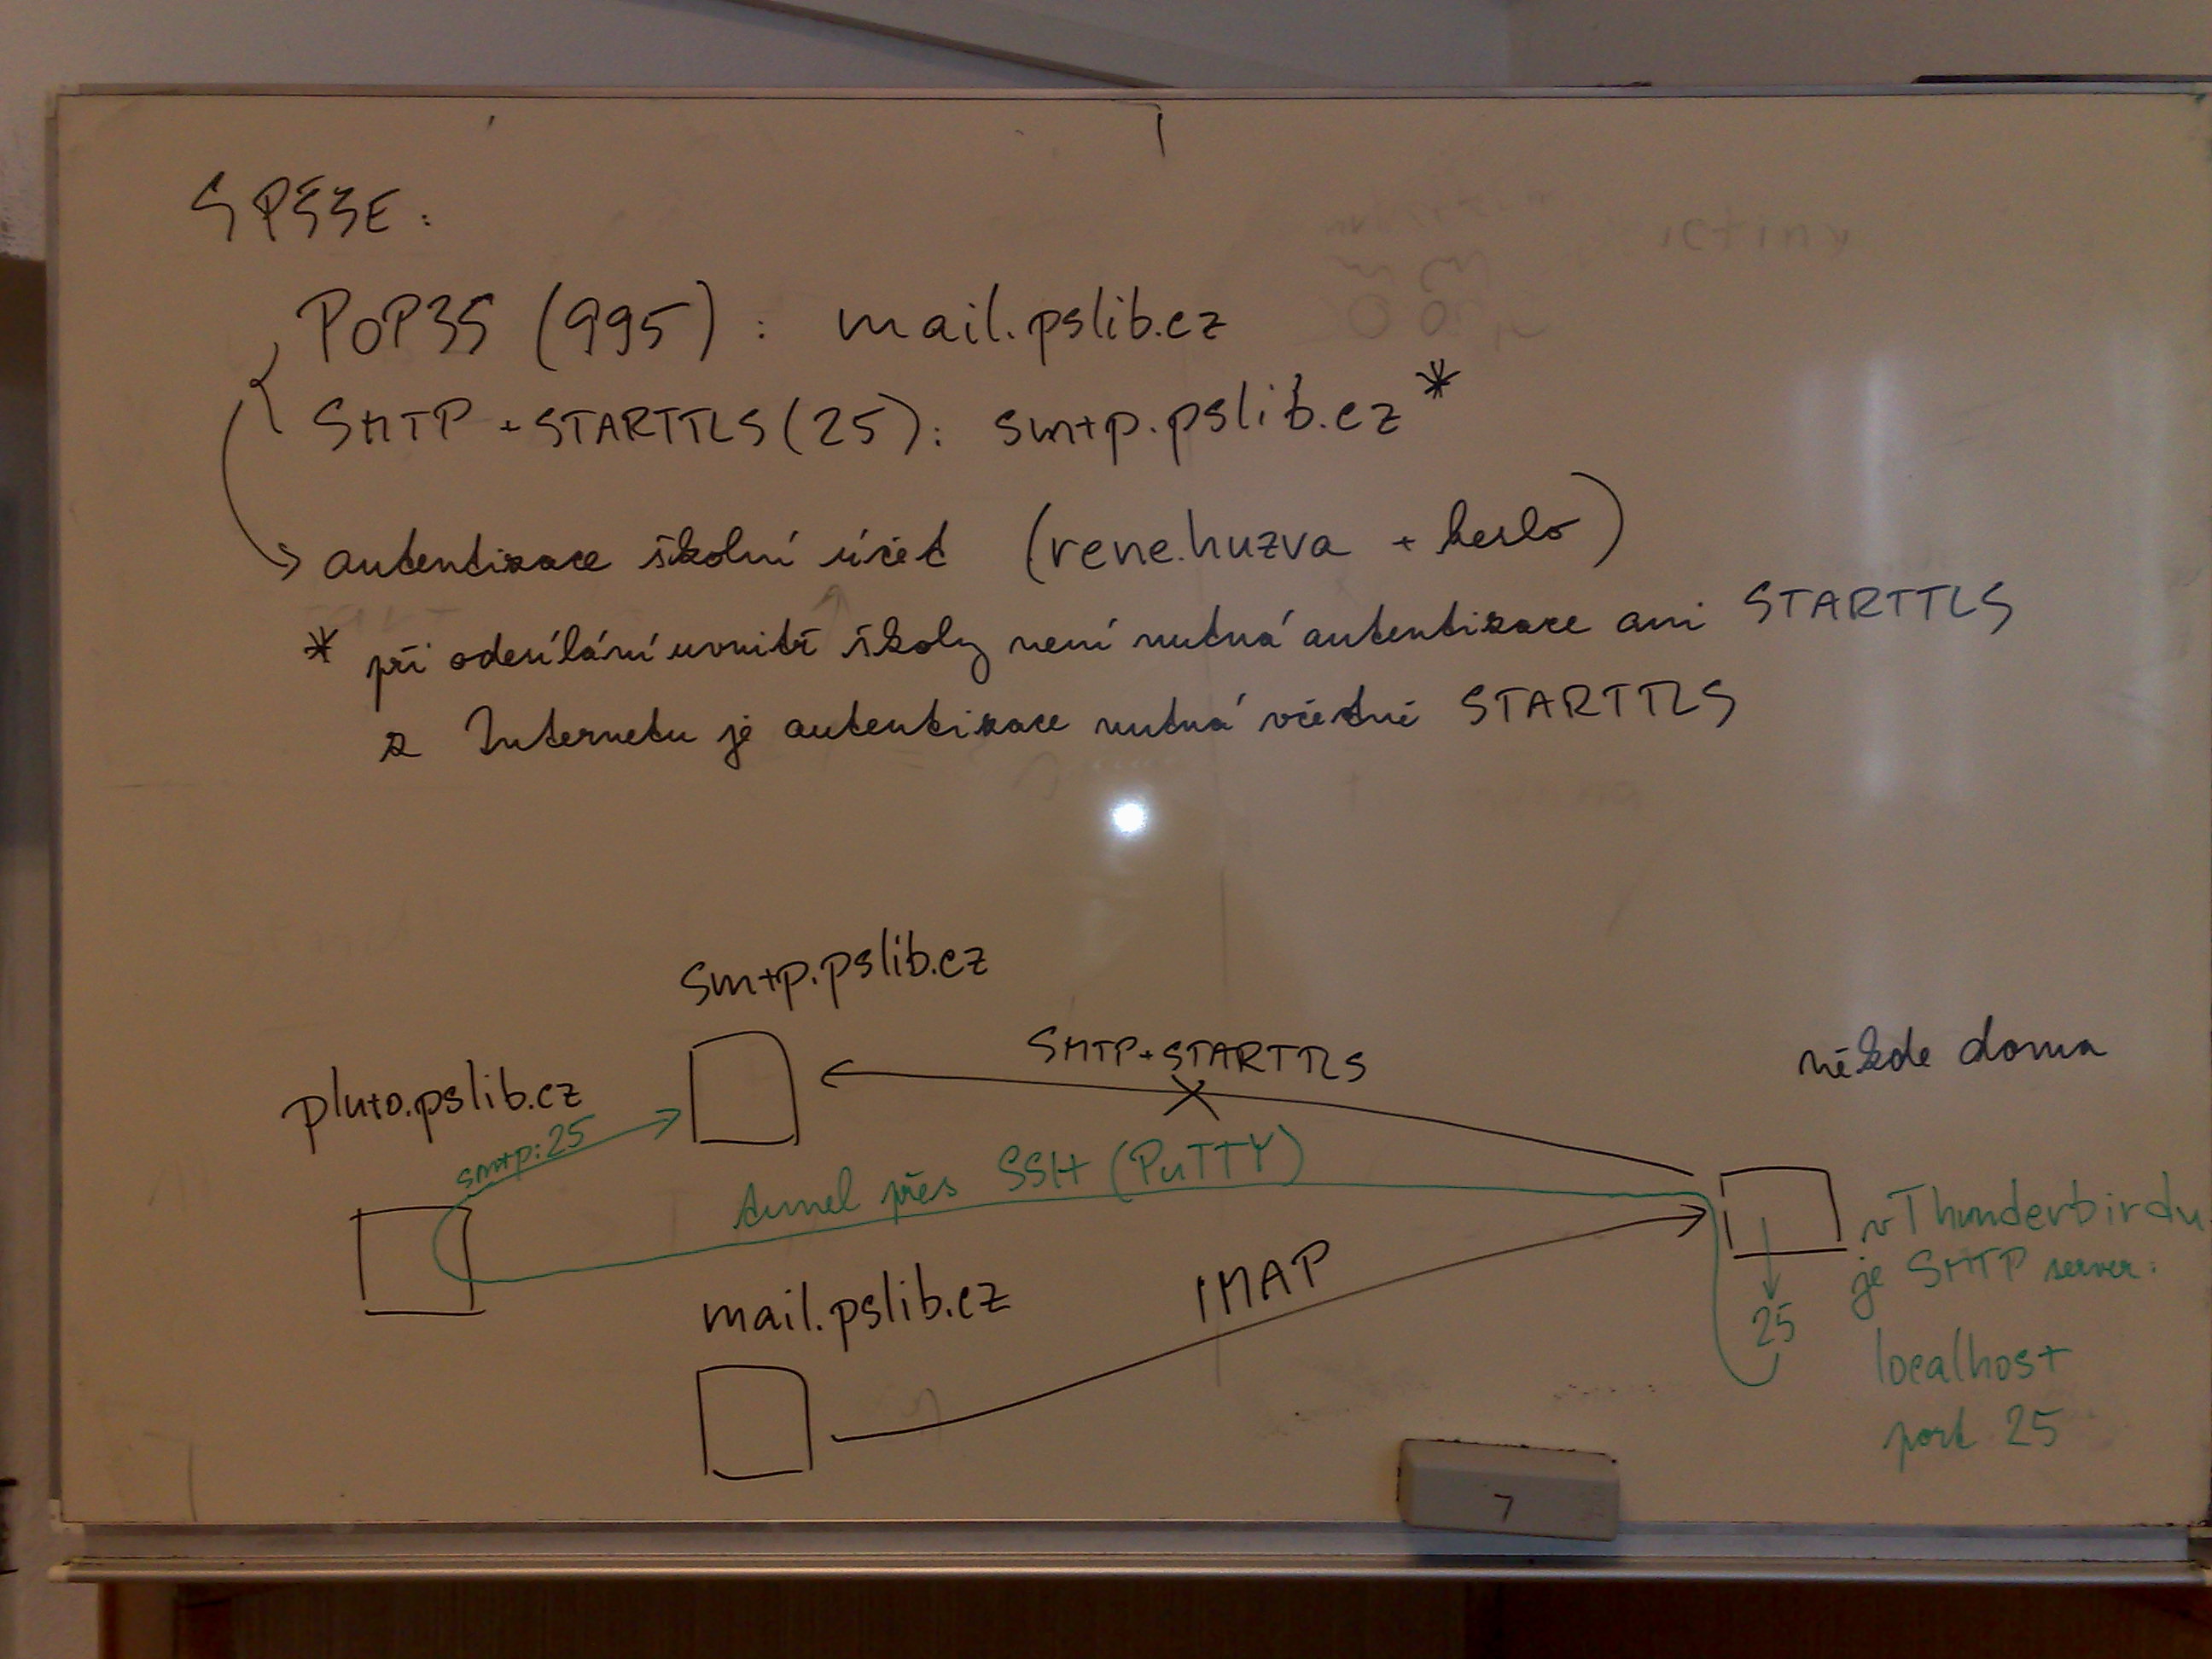 SPŠSE:
POP3S (995): mail.pslib.cz
SMTP + STARTTLS (25): smtp.pslib.cz *
autentizace školní účet (rene.huzva + heslo)
* při odesílání uvnitř školy není nutná autentizace ani STARTTLS
z Internetu je autentizace nutná včetně STARTTLS
smtp.pslib.cz
SMTP+STARTTLS
někde doma
pluto.pslib.cz
smtp:25
tunel přes SSH (PuTTY)
v Thunderbirdu
je SMTP server:
mail.pslib.cz
IMAP
25
localhost
port 25
7